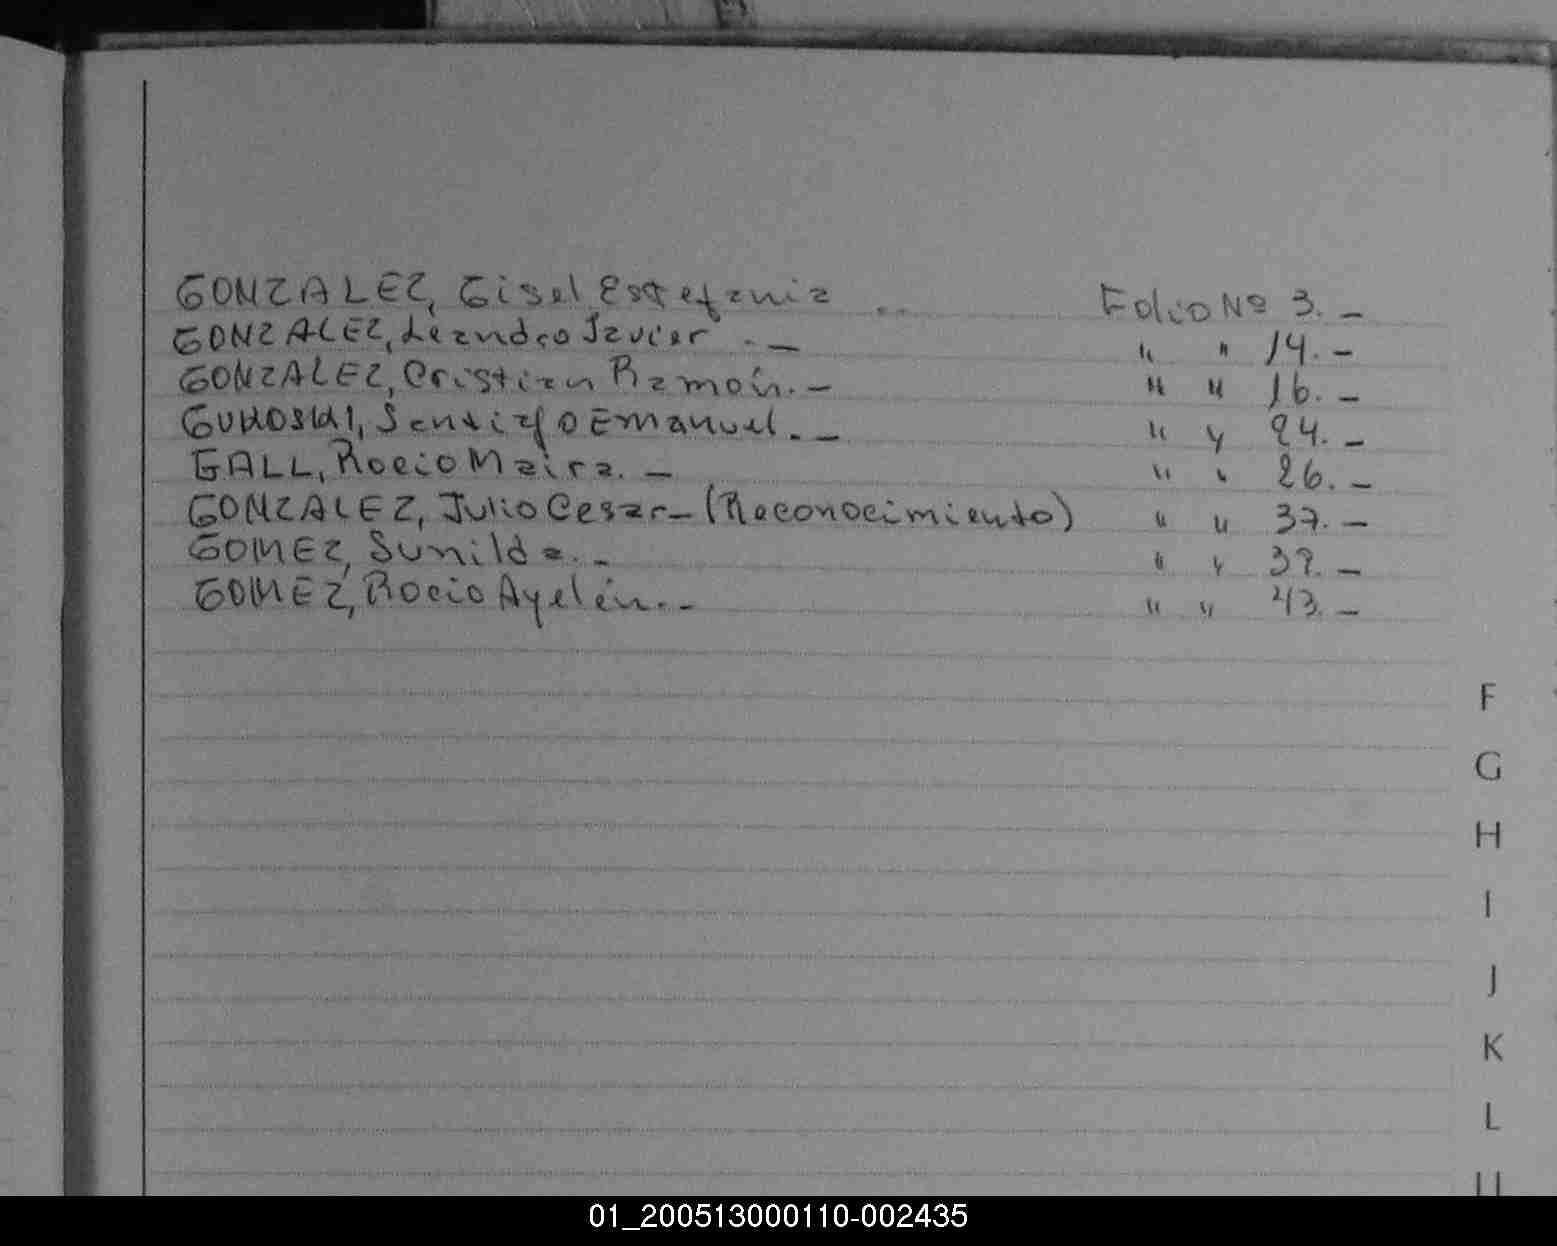 GONZALEZ, Gisel Estefania .. Folio Nº 3. -
GONZALEZ, Leandro Javier . - " " 14. -
GONZALEZ, Cristian Ramón. - " " 16. -
Santiago Emanuel. - " " 24. -
GALL, Rocio Maira. - " " 26. -
GONZALEZ, Julio Cesar - (Reconocimiento) " " 37. -
GOMEZ, Sunilda. - " " -
GOMEZ, Rocio Ayelén. - " " 43. -
F
G
H
I
J
K
L
01_200513000110-002435